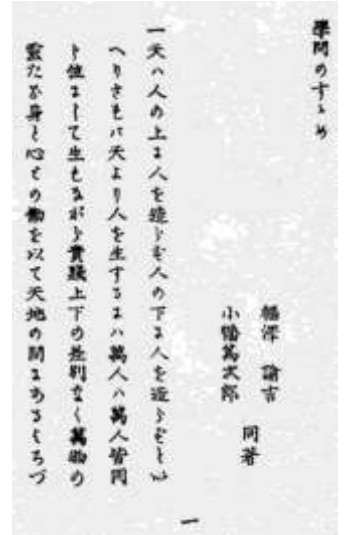 學問のすゝめ
福澤 諭吉
小幡篤次郎
同著
一天ハ人の上に人を造らず人の下に人を造らずとい
へりされバ天より人を生ずるにハ萬人ハ萬人皆同
じ位にして生れながら貴賤上下の差別なく萬物の
靈たる身と心との働を以て天地の間にあるよろづ
一